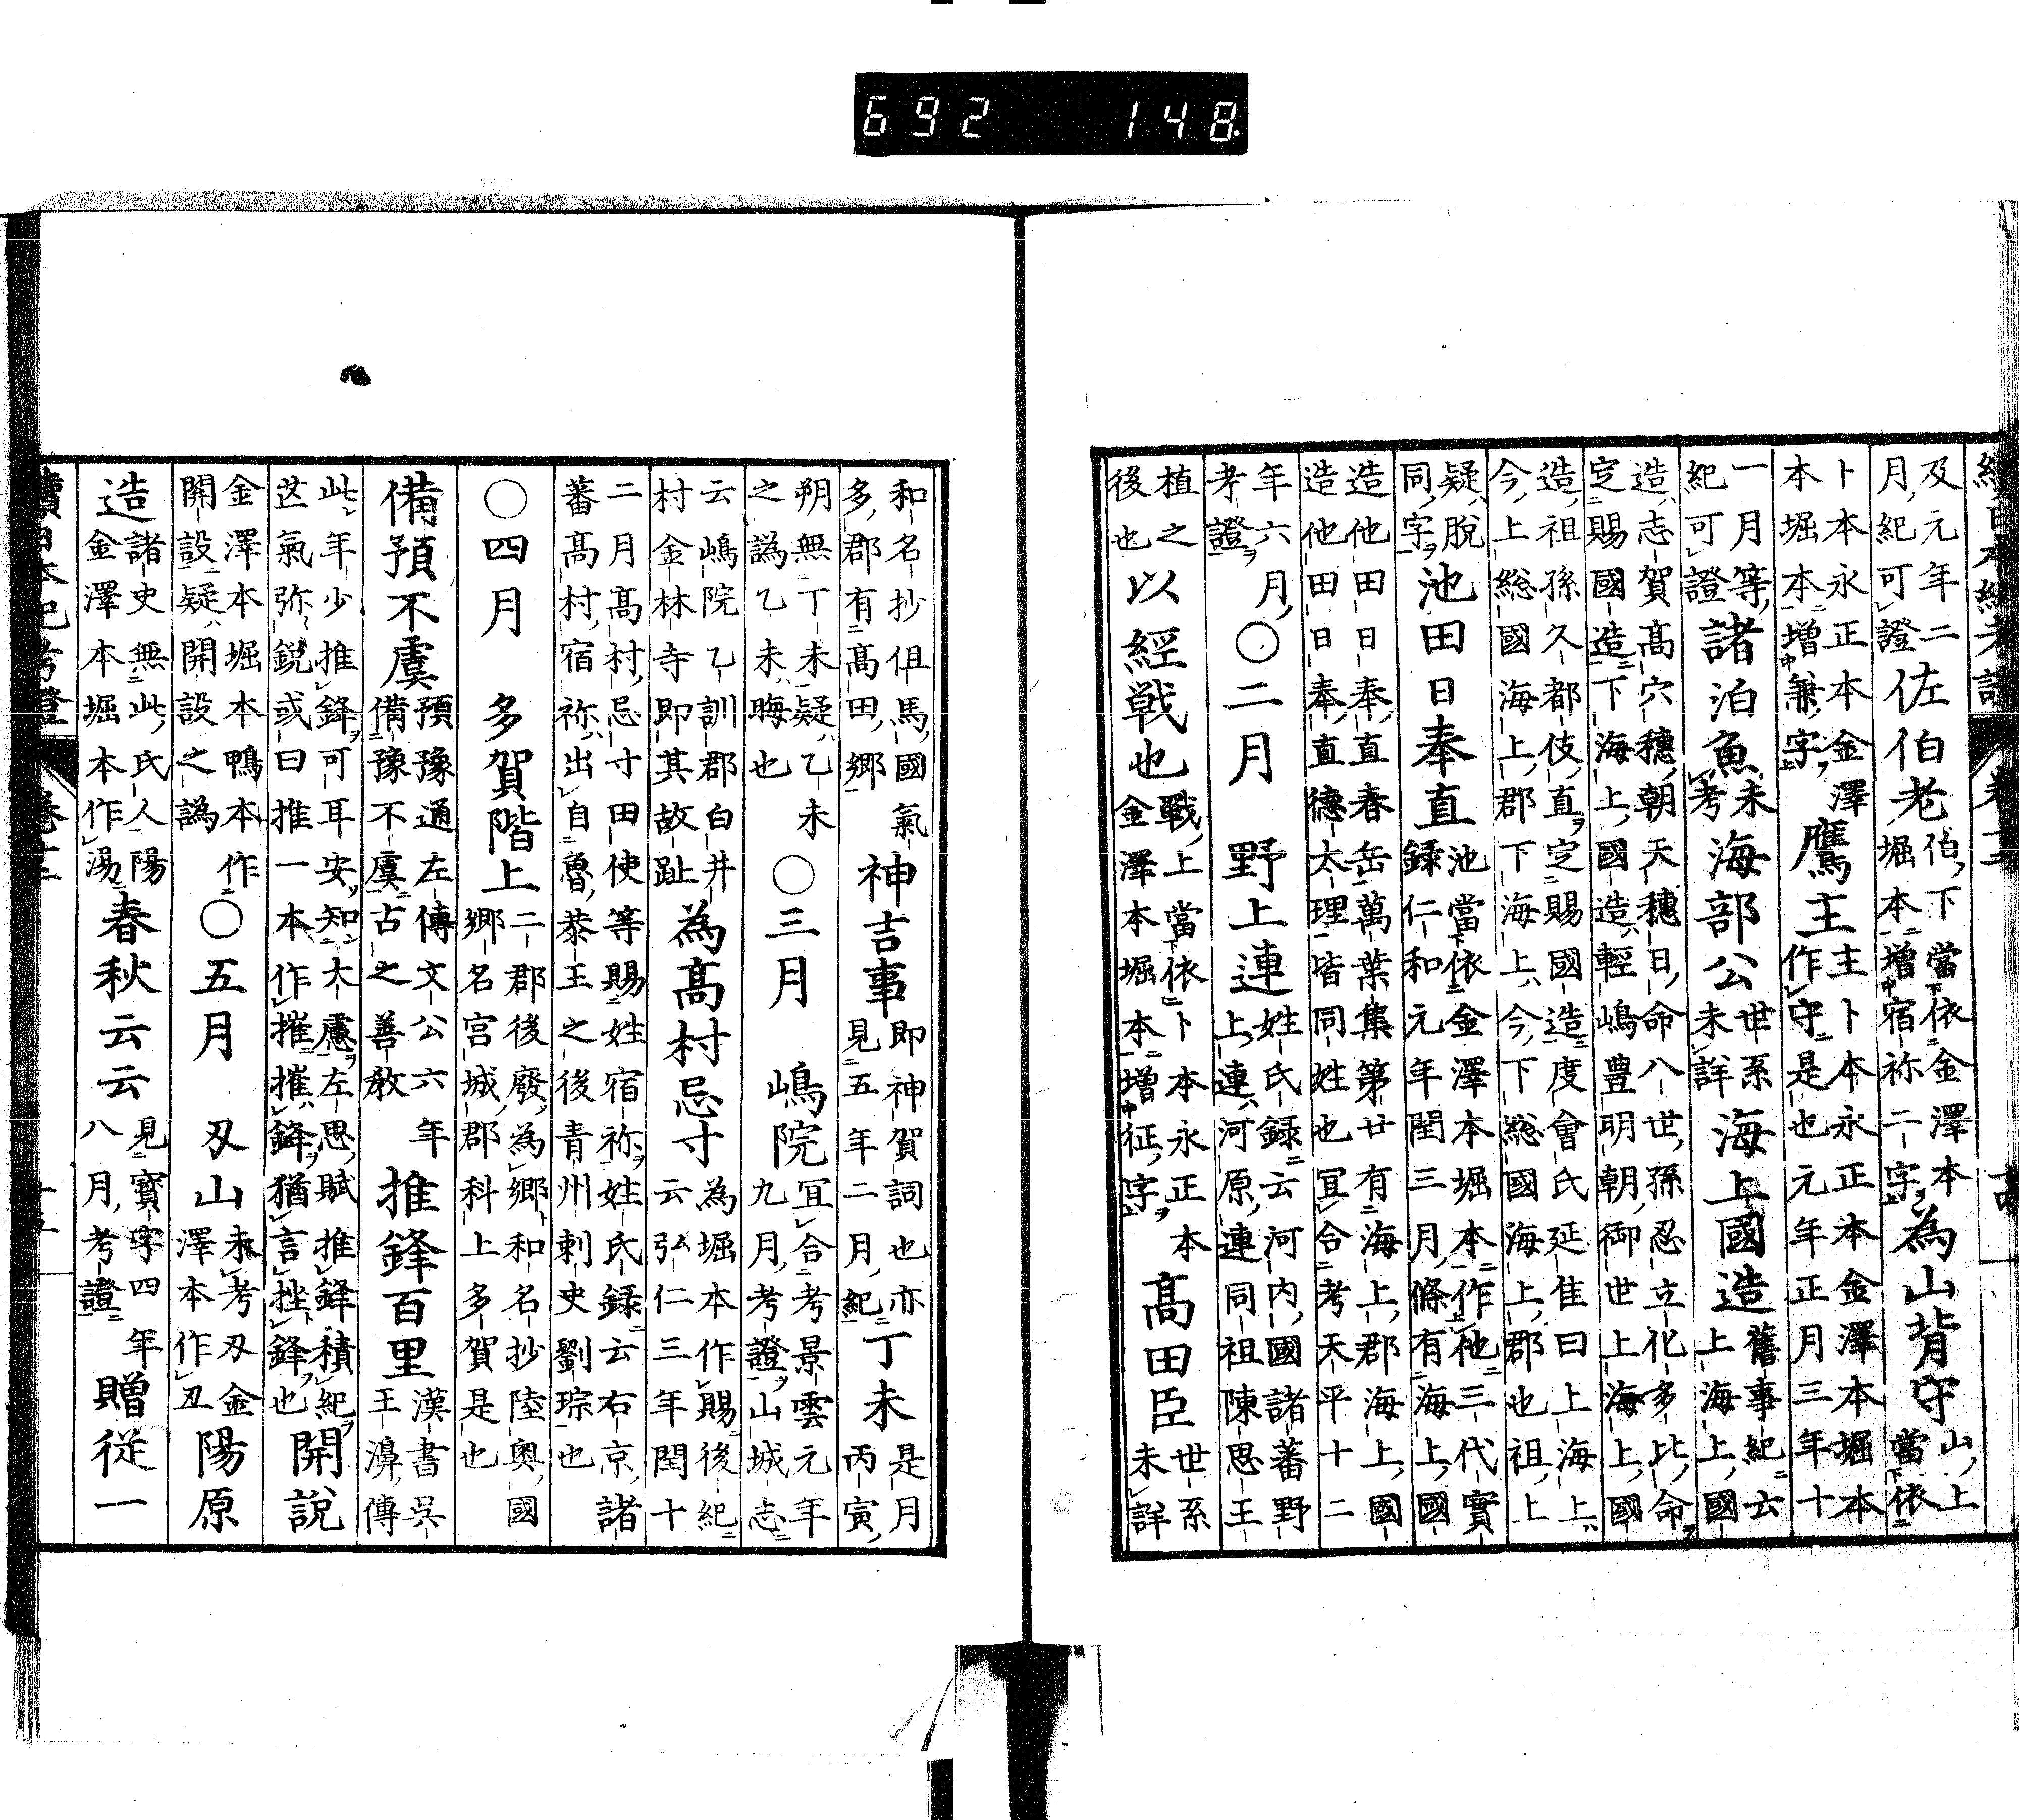 及元年二
月紀可證
佐伯老
伯下當依金澤本
堀本增宿祢二字
為山背守
山上
當依
卜本永正本金澤
本堀本增兼字
鷹主
主卜本永正本金澤本堀本
作守是也元年正月三年十
一月等
紀可證
諸泊魚
未
考
海部公
世系
未詳
海上國造
舊事紀云
上海上國
造志賀高穴穗朝天穗日命八世孫忍立化多比命
定賜國造下海上國造輕嶋豊明朝御世上海上國
造祖孫久都伎直定賜國造度會氏延佳曰上海上
今上総國海上郡下海上今下総國海上郡也祖上
疑脫
同字
池田日奉直
池當依金澤本堀本作他三代實
録仁和元年閏三月條有海上國
造他田日奉直春岳萬葉集第廿有海上郡海上國
造他田日奉直德太理皆同姓也宜合考天平十二
年六月
考證
〇二月 野上連
姓氏録云河内國諸蕃野
上連河原連同祖陳思王
植之
後也
以經戦也
戰上當依卜本永正本
金澤本堀本增征字
高田臣
世系
未詳
和名抄但馬國氣
多郡有高田郷
神吉事
即神賀詞也亦
見五年二月紀
丁未
是月
丙寅
朔無丁未疑乙未
之譌乙未晦也
〇三月 嶋院
宜合考景雲元年
九月考證山城志
云嶋院乙訓郡白井
村金林寺即其故趾
為高村忌寸
為堀本作賜後紀
云弘仁三年閏十
二月高村忌寸田使等賜姓宿祢姓氏録云右京諸
蕃高村宿祢出自魯恭王之後青州刺史劉琮也
〇四月 多賀階上
二郡後廢為郷和名抄陸奥國
郷名宮城郡科上多賀是也
備預不虞
預豫通左傳文公六年
備豫不虞古之善教
推鋒百里
漢書呉
王濞傳
此年少推鋒可耳安知大慮左思賦推鋒積紀
氣弥銳或曰推一本作摧摧鋒猶言挫鋒也
開說
金澤本堀本鴨本作
開設疑開設之譌
〇五月 刄山
未考刄金
澤本作刅
陽原
造
諸史無此氏人陽
金澤本堀本作湯
春秋云云
見寶字四年
八月考證
贈從一
692 148